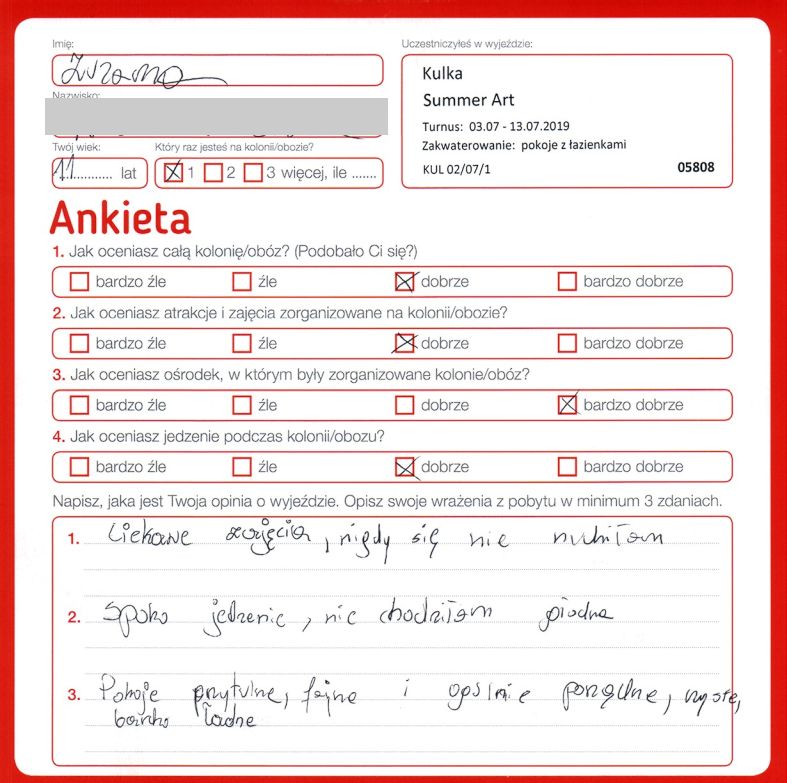 Imię:
Zuzanna
Uczestniczyłeś w wyjeździe:
Kulka
Summer Art
Turnus: 03.07 - 13.07.2019
Zakwaterowanie: pokoje z łazienkami
KUL 02/07/1 05808
Nazwisko:
Twój wiek: Który raz jesteś na kolonii/obozie?
11 lat 1 2 3 więcej, ile .......
Ankieta
1. Jak oceniasz całą kolonię/obóz? (Podobało Ci się?)
bardzo źle źle dobrze bardzo dobrze
2. Jak oceniasz atrakcje i zajęcia zorganizowane na kolonii/obozie?
bardzo źle źle dobrze bardzo dobrze
3. Jak oceniasz ośrodek, w którym były zorganizowane kolonie/obóz?
bardzo źle źle dobrze bardzo dobrze
4. Jak oceniasz jedzenie podczas kolonii/obozu?
bardzo źle źle dobrze bardzo dobrze
Napisz, jaka jest Twoja opinia o wyjeździe. Opisz swoje wrażenia z pobytu w minimum 3 zdaniach.
1. Ciekawe zajęcia, nigdy się nie nudziłam
2. Spoko jedzenie, nie chodziłam głodna
3. Pokoje przytulne, fajne i ogólnie porządne, czyste,
bardzo ładne